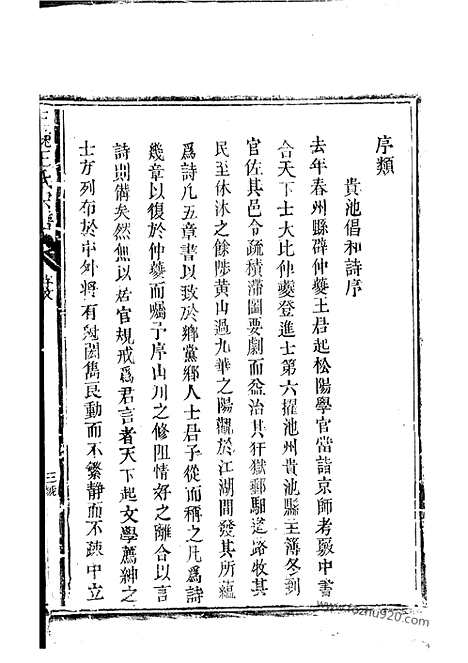 序類
貴池倡和詩序
去年春州縣辟仲夔王君起松陽學官當詣京師考覈中書
合天下士大比仲夔登進士第六擢池州貴池縣主簿冬到
官佐其邑令疏積滯圖要劇而益治其犴獄郵馹道路收其
民至休沐之餘陟黄山過九華之陽觀於江湖間發其所蘊
爲詩凡五章書以致於鄉黨鄉人士君子從而稱之凡爲詩
幾章以復於仲夔而囑予序山川之修阻情好之離合以言
詩則備矣然無以居官規戒爲君言者天下起文學薦紳之
士方列布於中外將有
動而不繁静而不疎中立
王氏宗譜
三
www.fozhu920.com